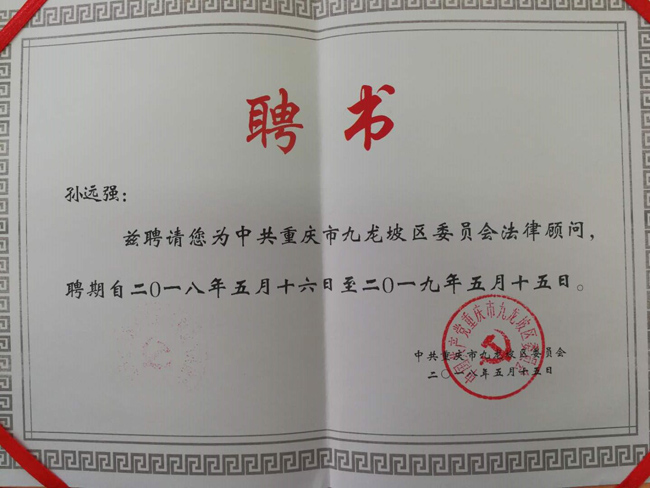 聘书
孙远强：
兹聘请您为中共重庆市九龙坡区委员会法律顾问，
聘期自二〇一八年五月十六日至二〇一九年五月十五日。
中共重庆市九龙坡区委员会
二〇一八年五月十五日